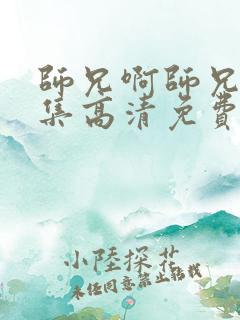 師兄啊師兄
集高清免費
小陸探花
未经同意禁止转载